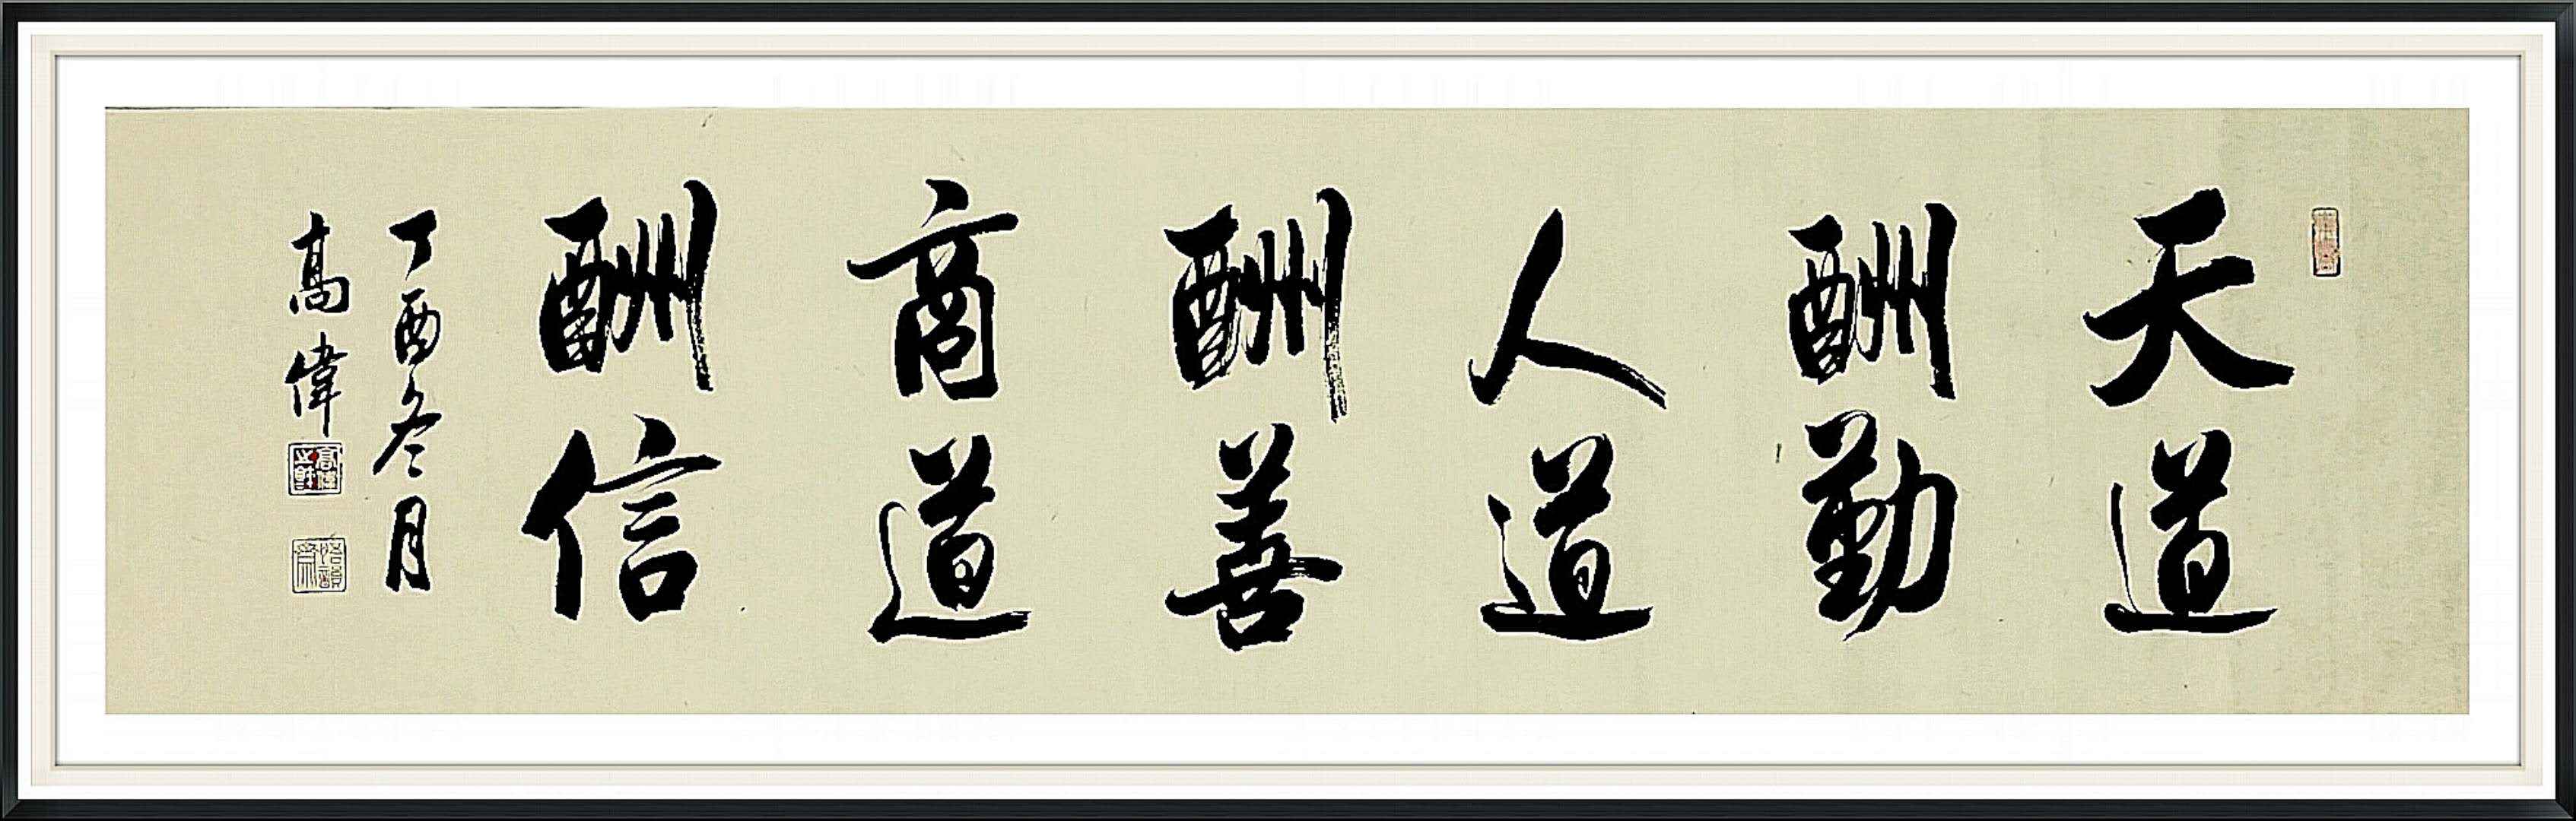 天道
酬勤
人道
酬善
商道
酬信
丁酉冬月
高偉